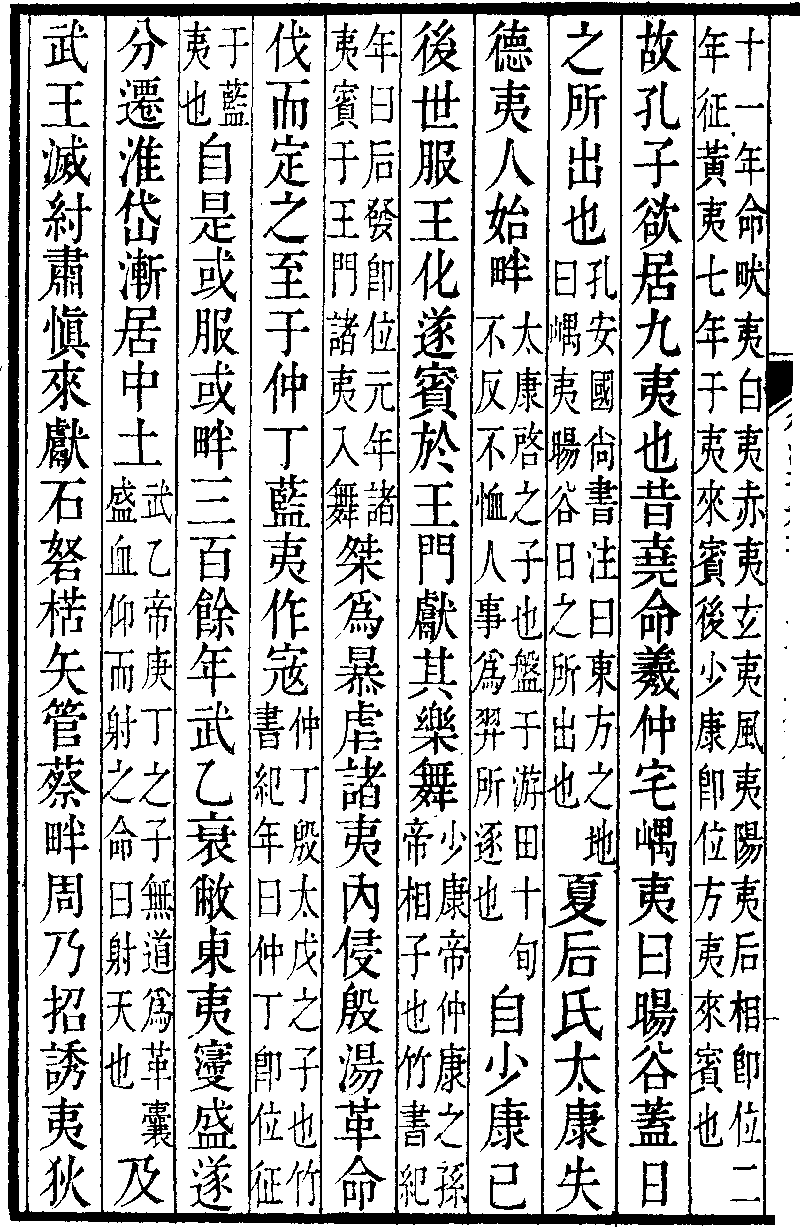 十一年命畎夷白夷赤夷玄夷風夷陽夷后相卽位二
年征黃夷七年于夷來賓後少康卽位方夷來賓也
故孔子欲居九夷也昔堯命羲仲宅嵎夷曰暘谷蓋日
之所出也
孔安國尚書注曰東方之地
曰嵎夷暘谷日之所出也
夏后氏太康失
德夷人始畔
太康啓之子也盤于游田十旬
不反不恤人事爲羿所逐也
自少康已
後世服王化遂賓於王門獻其樂舞
少康帝仲康之孫
帝相子也竹書紀
年曰后發卽位元年諸
夷賓于王門諸夷入舞
桀爲暴虐諸夷內侵殷湯革命
伐而定之至于仲丁藍夷作寇
仲丁殷太戊之子也竹
書紀年曰仲丁卽位征
于藍
夷也
自是或服或畔三百餘年武乙衰敝東夷寖盛遂
分遷淮岱漸居中土
武乙帝庚丁之子無道爲革囊
盛血仰而射之命曰射天也
及
武王滅紂肅愼來獻石砮楛矢管蔡畔周乃招誘夷狄